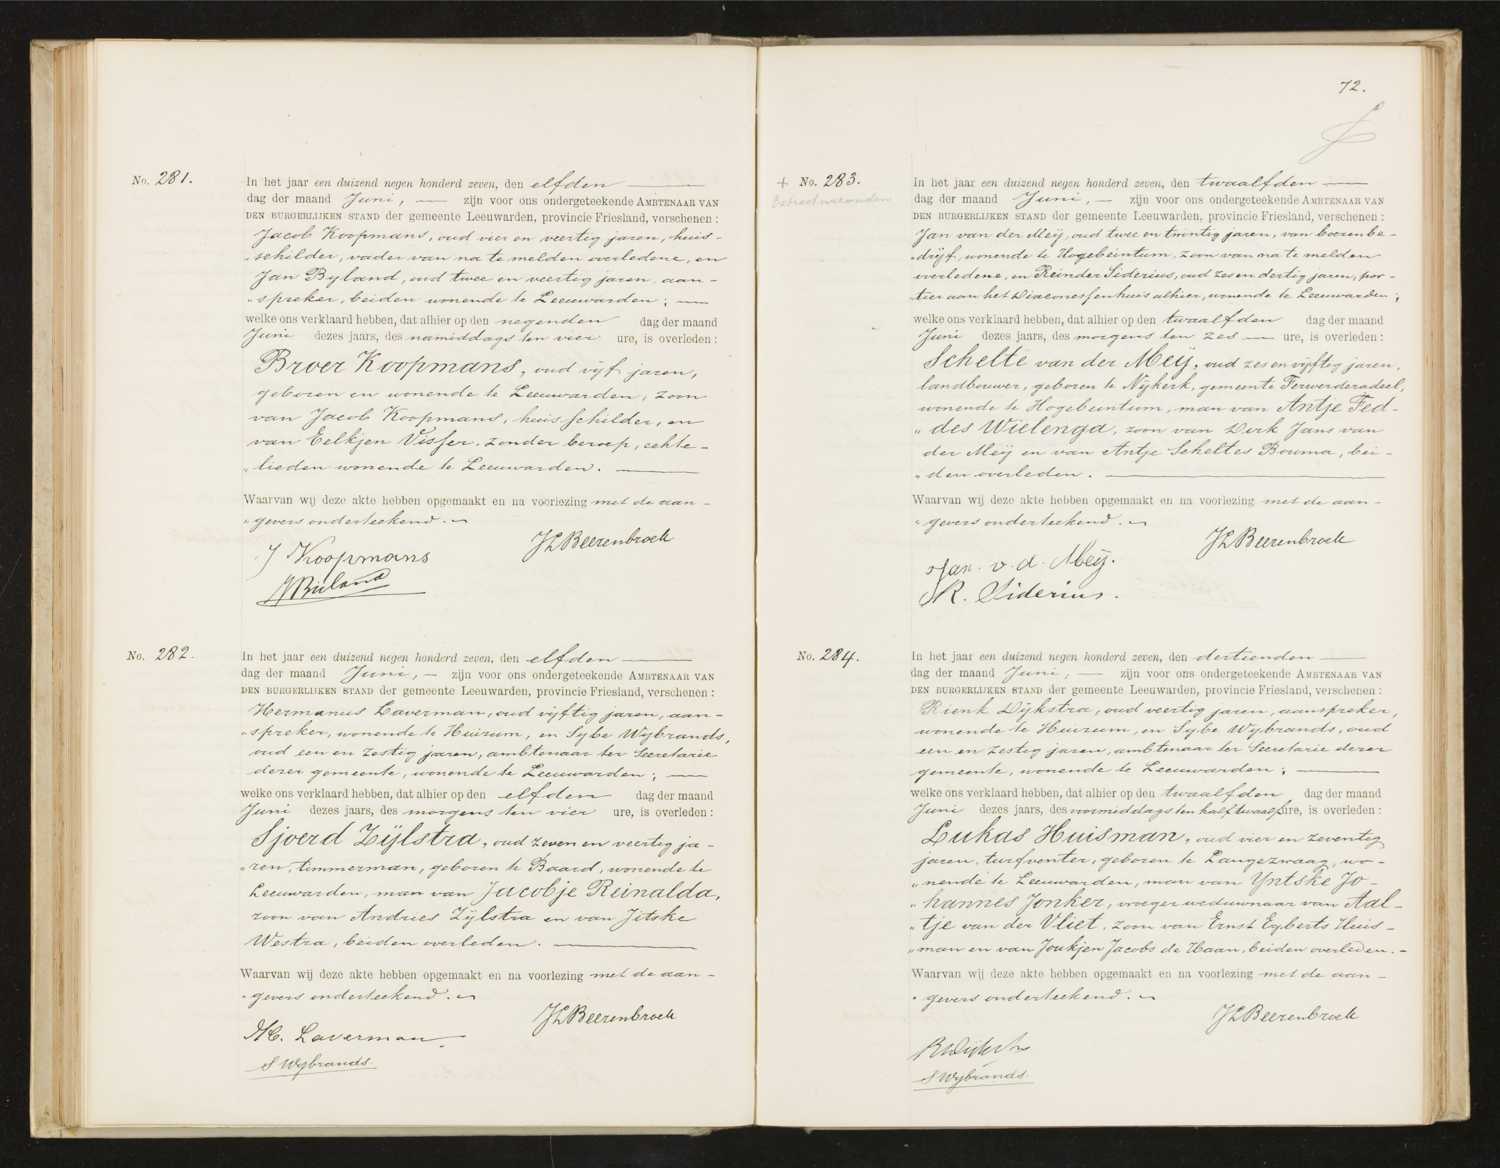 No. 281.
In het jaar een duizend negen honderd zeven, den elfden
dag der maand Juni, — zijn voor ons ondergeteekende AMBTENAAR VAN
DEN BURGERLIJKEN STAND der gemeente Leeuwarden, provincie Friesland, verschenen:
Jacob Koopmans, oud vier en veertig jaren, huis-
schilder, vader van na te melden overledene, en
Jan Byland, oud twee en veertig jaren, aan-
spreker, beiden wonende te Leeuwarden; —
welke ons verklaard hebben, dat alhier op den negenden dag der maand
Juni dezes jaars, des namiddags ten vier ure, is overleden:
Broer Koopmans, oud vijf jaren,
geboren en wonende te Leeuwarden, zoon
van Jacob Koopmans, huisschilder, en
van Eelkjen Visser, zonder beroep, echte-
lieden wonende te Leeuwarden. —
Waarvan wij deze akte hebben opgemaakt en na voorlezing met de aan-
gevers onderteekend.
JLBeerenbroek
J Koopmans
JBijland
No. 282.
In het jaar een duizend negen honderd zeven, den elfden
dag der maand Juni, — zijn voor ons ondergeteekende AMBTENAAR VAN
DEN BURGERLIJKEN STAND der gemeente Leeuwarden, provincie Friesland, verschenen:
Hermanus Laverman, oud vijftig jaren, aan-
spreker, wonende te Huizum, en Sybe Wybrands,
oud een en zestig jaren, ambtenaar ter Secretarie
dezer gemeente, wonende te Leeuwarden; —
welke ons verklaard hebben, dat alhier op den elfden dag der maand
Juni dezes jaars, des morgens ten vier ure, is overleden:
Sjoerd Zijlstra, oud zeven en veertig ja-
ren, timmerman, geboren te Baard, wonende te
Leeuwarden, man van Jacobje Reinalda,
zoon van Andries Zijlstra en van Jitske
Westra, beiden overleden. —
Waarvan wij deze akte hebben opgemaakt en na voorlezing met de aan-
gevers onderteekend.
JLBeerenbroek
H. Laverman
S Wybrands
72.
+ No. 283.
In het jaar een duizend negen honderd zeven, den twaalfden
dag der maand Juni, — zijn voor ons ondergeteekende AMBTENAAR VAN
DEN BURGERLIJKEN STAND der gemeente Leeuwarden, provincie Friesland, verschenen:
Jan van der Meij, oud twee en twintig jaren, van boerenbe-
drijf, wonende te Hogebeintum, zoon van na te melden
overledene, en Reinder Siderius, oud zes en dertig jaren, por-
tier aan het Diaconessenhuis alhier, wonende te Leeuwarden;
welke ons verklaard hebben, dat alhier op den twaalfden dag der maand
Juni dezes jaars, des morgens ten zes — ure, is overleden:
Schelte van der Meij, oud zes en vijftig jaren,
landbouwer, geboren te Nijkerk, gemeente Ferwerderadeel,
wonende te Hogebeintum, man van Antje Fed-
des Wielenga, zoon van Dirk Jans van
der Meij en van Antje Scheltes Bouma, bei-
den overleden. —
Waarvan wij deze akte hebben opgemaakt en na voorlezing met de aan-
gevers onderteekend.
JLBeerenbroek
Jan v. d. Meij.
R. Siderius.
No. 284.
In het jaar een duizend negen honderd zeven, den dertienden
dag der maand Juni, — zijn voor ons ondergeteekende AMBTENAAR VAN
DEN BURGERLIJKEN STAND der gemeente Leeuwarden, provincie Friesland, verschenen:
Rienk Dijkstra, oud veertig jaren, aanspreker,
wonende te Huizum, en Sybe Wybrands, oud
een en zestig jaren, ambtenaar ter Secretarie dezer
gemeente, wonende te Leeuwarden; —
welke ons verklaard hebben, dat alhier op den twaalfden dag der maand
Juni dezes jaars, des voormiddags ten half twaalf ure, is overleden:
Lukas Huisman, oud vier en zeventig
jaren, turfventer, geboren te Langezwaag, wo-
nende te Leeuwarden, man van Yntske Jo-
hannes Jonker, vroeger weduwnaar van Aal-
tje van der Vliet, zoon van Ernst Egberts Huis-
man en van Joukjen Jacobs de Haan, beiden overleden. —
Waarvan wij deze akte hebben opgemaakt en na voorlezing met de aan-
gevers onderteekend.
JLBeerenbroek
S Wybrands